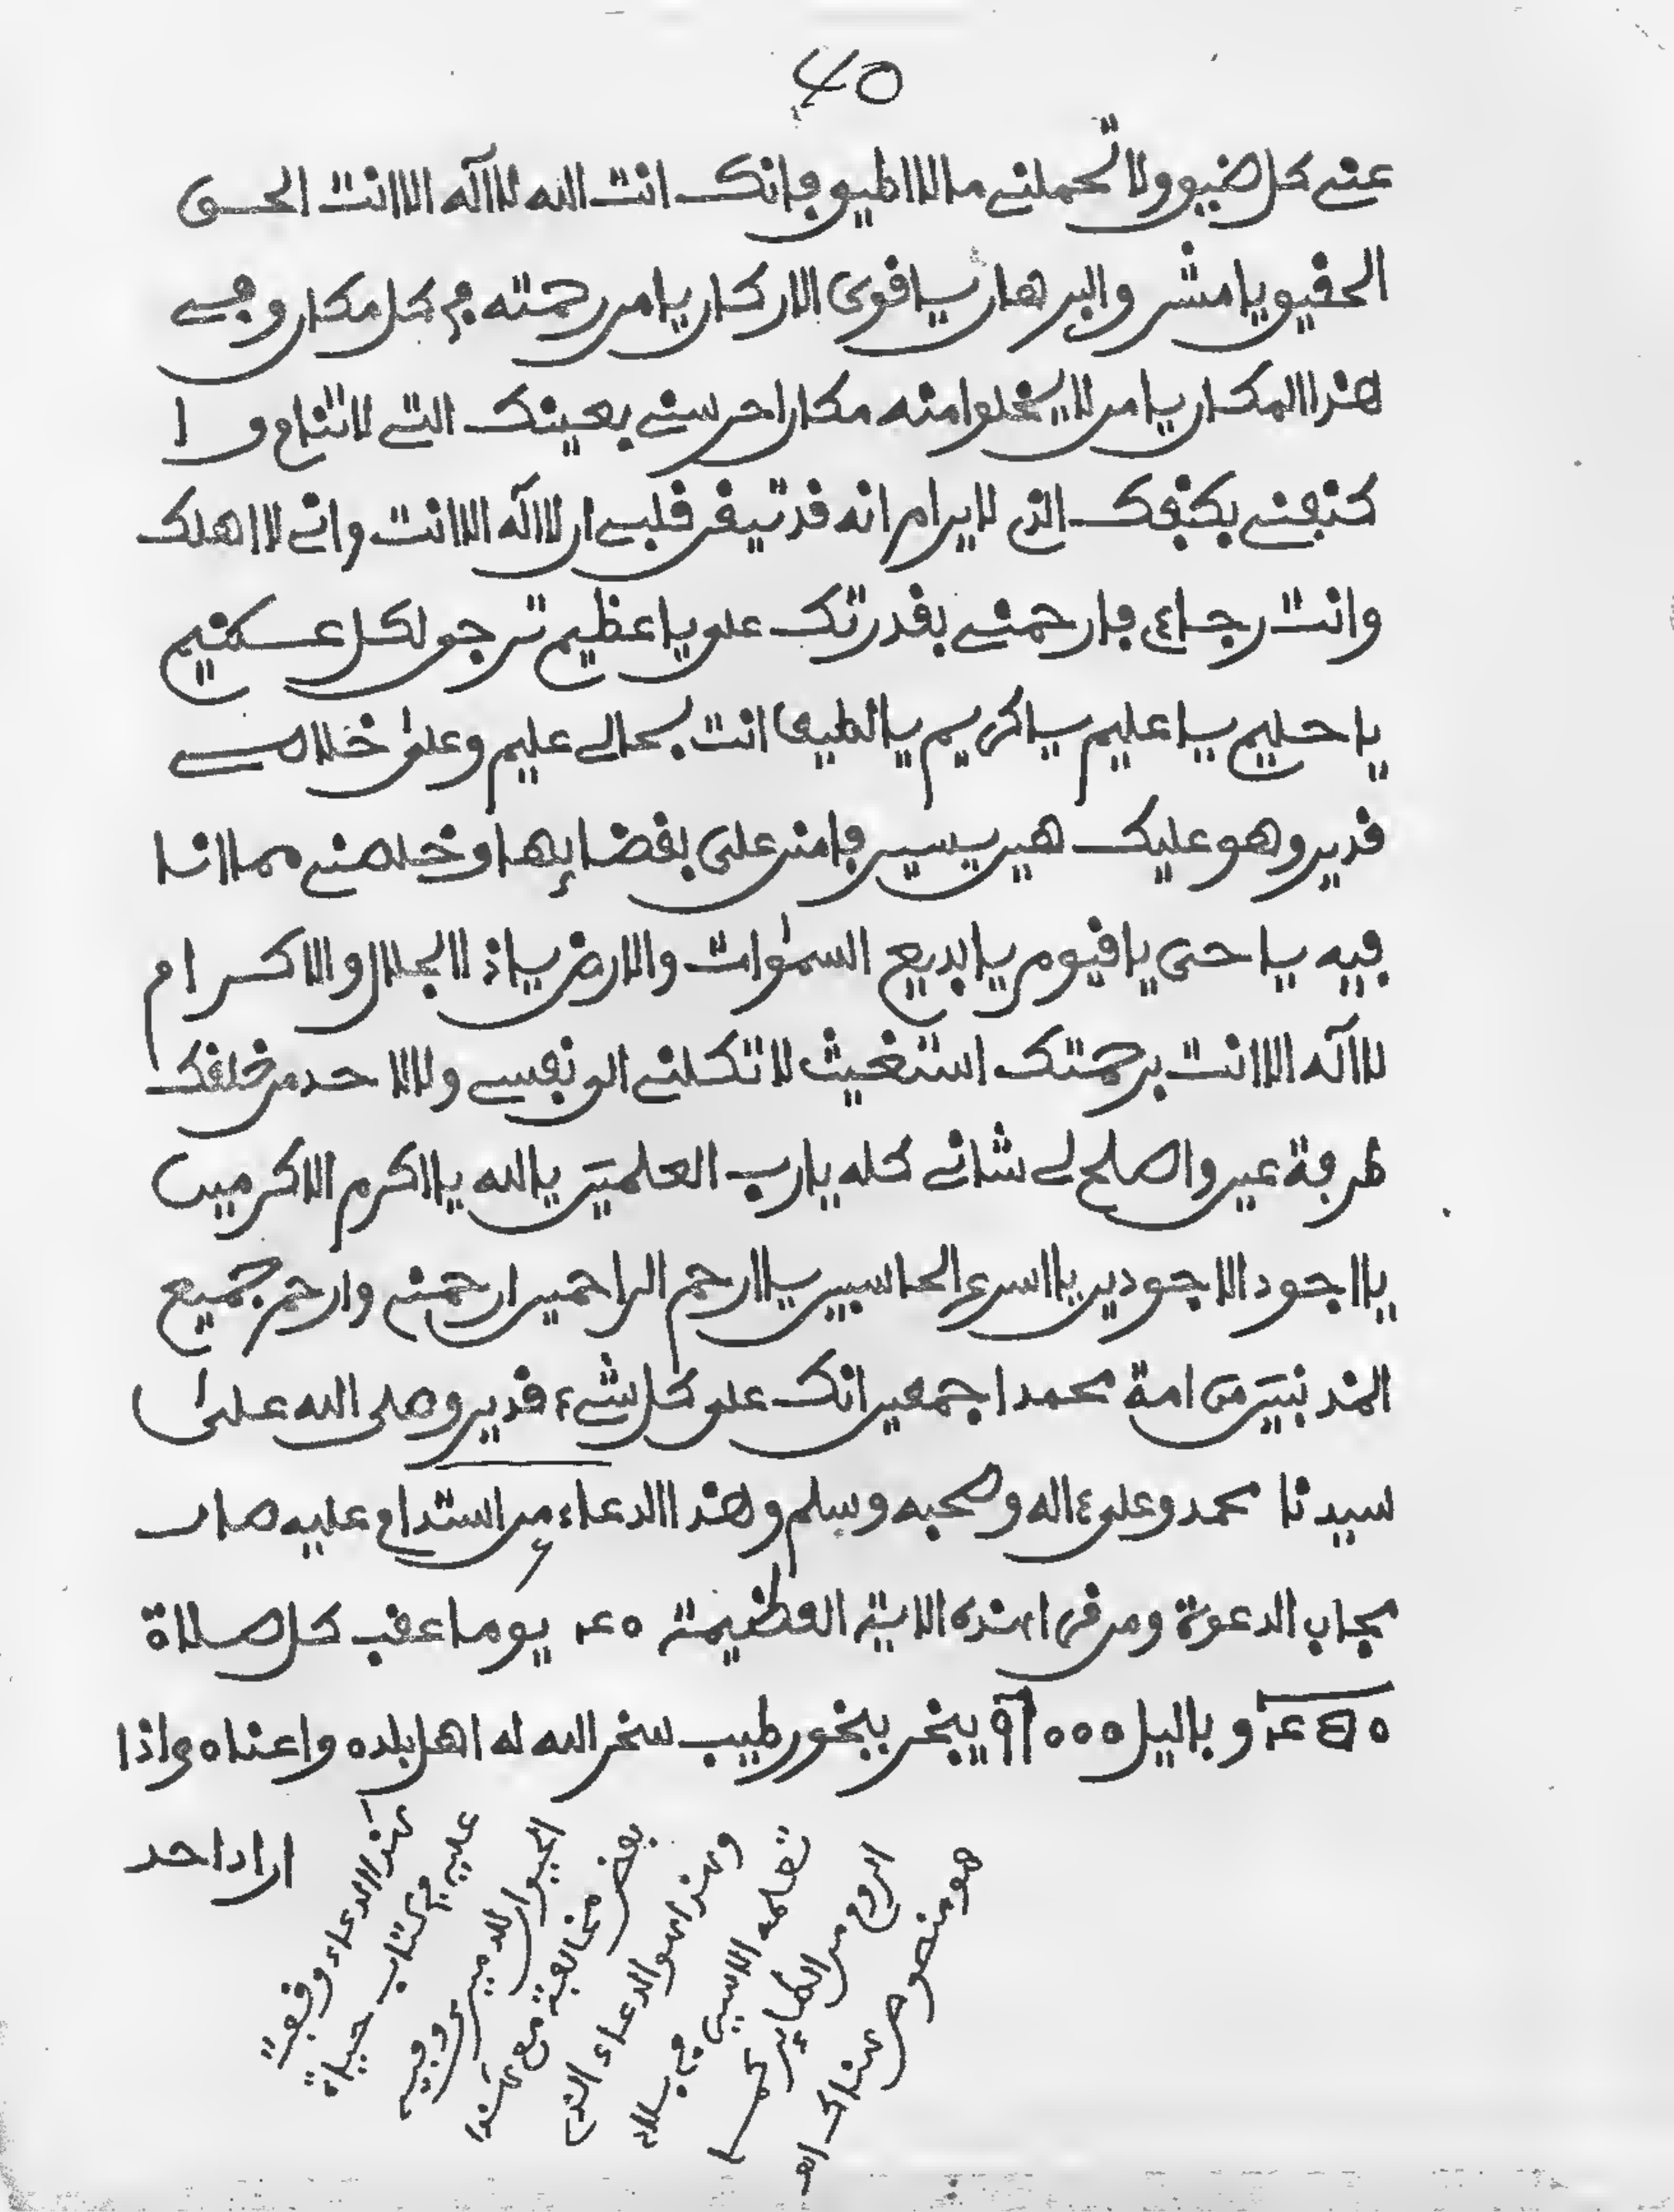 40
عني كل ضيق ولا تحملني ما لا اطيق فإنك انت الله لا اله الا انت الحق
الحقيق يا مشرق البرهان يا قوي الاركان يا من رحمته في كل مكان وفي
هذا المكان يا من لا يخلوا منه مكان احرسني بعينك التي لا تنام و ا
كنفني بكنفك الذي لا يرام انه قد تيقن قلبي ان لا اله الا انت واني لا اهلك
وانت رجاءي فارحمني بقدرتك علي يا عظيم ترجى لكل عظيم
يا حليم يا عليم يا كريم يا لطيف انت بحالي عليم وعلى خلاصي
قدير وهو عليك هين يسير فامنن علي بقضايها وخلصني مما انا
فيه يا حي يا قيوم يا بديع السموات والارض يا ذا الجلال والاكرام
لا اله الا انت برحمتك استغيث لا تكلني الى نفسي ولا لا حد من خلقك
طرفة عين واصلح لي شاني كله يا رب العلمين يا الله يا اكرم الاكرمين
يا اجود الاجودين يا اسرع الحاسبين يا ارحم الراحمين ارحمني وارحم جميع
المذنبين من امة محمد اجمعين انك على كل شيء قدير وصلى الله على
سيدنا محمد وعلى ءاله وصحبه وسلم وهذا الدعاء من استدام عليه صار
مجاب الدعوة ومن قرا هذه الاية العظيمة يوما عقب كل صلاة
وباليل يبخر ببخور طيب سخر الله له اهل بلده واعناه واذا
اراد احد
هذا الدعاء وقفت
عليه في كتاب حياة
الحيوان للدميري وفيه
بعض مخالفة مع هذا
وهذا هو الدعاء الذي
تعلمه الاسير في بلاد
الروم من الطاير كما
هو منصوص هناك اه